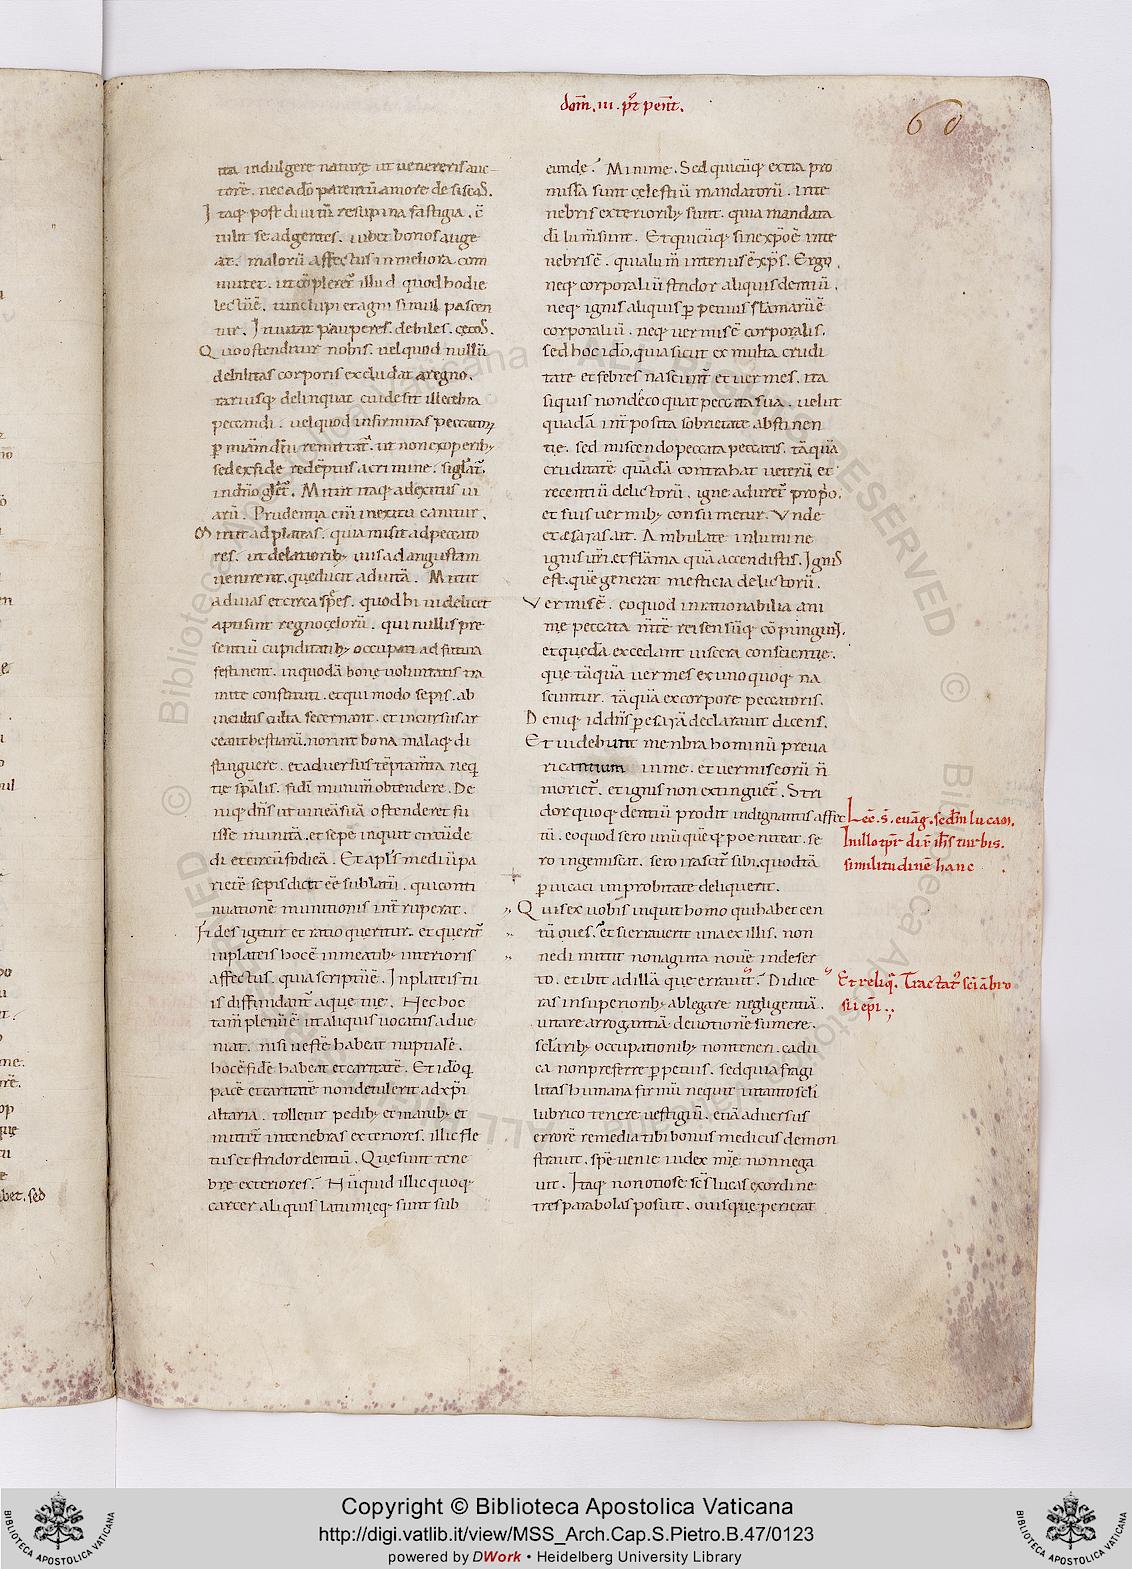 dom̄. iii. pꝰt pent̄.
60
ita indulgere naturę ut venereris auc-
torē. nec ad dō parentū amore desiscaꝰ.
Itaq; post diuitū resupina fastigia. c̄
uertit se ad gentes. iubet bonos auge
āt. malorū affectus in meliora com
mutet. ut cōpleret̄ illud quod hodie
lectū ē. tunc lupi et agni simul pascen
tur. Inuitat pauperes. debiles. cęcoꝰ.
Quo ostenditur nobis. vel quod nullū
debilitas corporis excludat a regno.
rariusq; delinquat cui desit illecebra
peccandi. vel quod infirmitas peccatorꝝ
ꝑ miām dn̄i remittat̄. ut non ex operibꝫ
sed ex fide redēptus a crimine. si gl̄at̄.
in dn̄o gl̄et̄. Mittit itaq; ad exitus ui
arū. Prudentia eni in exitu canitur.
Mittit ad plateas. quia misit ad peccato
res. ut de latioribꝫ uiis ad angustam
uenirent. quę ducit ad uitā. Mittit
ad uias et circa sępes. quod hi uidelicet
apti sint regno cęlorū. qui nullis prę
sentiū cupiditatibꝫ occupati ad futura
festinent. in quodā bonę uoluntatis tra
mite constituti. et qui modo sępis. ab
incultis culta secernant. et incursus ar
ceant bestiarū. norint bona malaq; di
stinguere. et aduersus tēptam̄ta neq
tię sp̄alis. fidī munim̄ obtendere. De
niq; dn̄s ut uineā suā ostenderet fu
isse munitā. et sepe inquit circūde
di et circūfodi eā. Et apl̄s mediū pa
rietē sępis dicit eē sublatū. qui conti
nuationē munitionis int̄ruperat.
Fides igitur et ratio queritur. et querit̄
in plateis hoc ē in meatibꝫ interioris
affectus. quia scriptū ē. In plateis tu
is diffundant̄ aquę tuę. Nec hoc
tam̄ plenū ē ut aliquis uocatus adue
niat. nisi uestē habeat nuptialē.
hoc ē fidē habeat et caritatē. Et idō q
pacē et caritatē non detulerit ad xp̄i
altaria. tolletur pedibꝫ et manibꝫ et
mittet̄ in tenebras exteriores. illic fle
tus et stridor dentiū. Quę sunt tene
brę exteriores.? Nūquid illic quoq;
carcer aliquis latumięq; sunt sub
eundę.? Minime. Sed quicūq; extra pro
missa sunt cęlestiū mandatorū. in te
nebris exterioribꝫ sunt. quia mandata
dī lum̄ sunt. Et quicūq; sine xp̄o ē in te
nebris ē. quia lum̄ interius ē xp̄s. Ergo
neq; corporaliū stridor aliquis dentiū.
neq; ignis aliquis ꝑpetuus flāmarū ē
corporaliū. neq; uermis ē corporalis.
sed hoc idō. quia sicut ex multa crudi
tate et febres nascunt̄ et uermes. ita
siquis non decoquat peccata sua. uelut
quadā int̄posita sobrietate abstinen
tię. sed miscendo peccata peccatis. tāquā
cruditatē quādā contrahat ueterū et
recentiū delictorū. igne aduret̄ propo.
et suis uermibꝫ consumetur. Unde
et ęsaias ait. Ambulate in lumine
ignis ur̄i. et flāma quā accendistis. Igniꝰ
est. quē generat męsticia delictorū.
Vermis ē. eo quod inrationabilia ani
mę peccata m̄te rei sensūq; cōpungūt.
et quędā excedunt uiscera conscientię.
que tāquā uermes ex unoquoq; na
scuntur. tāquā ex corpore peccatoris.
Deniq; id dn̄s ꝑ esaiā declarauit dicens.
Et uidebunt menbra hominū preua
ricantium in me. et uermis eorū n̄
moriet̄. et ignis non extinguet̄. Stri
dor quoq; dentiū prodit indignantis affec
tū. eo quod sero unū quēq; poeniteat. se
ro ingemiscat. sero irascat̄ sibi. quod tā
ꝑuicaci improbitate deliquerit.
Quis ex uobis inquit homo qui habet cen
tū oues. et si errauerit una ex illis. non
ne dimittit nonaginta nouē in deser
to. et ibit ad illā quę errauit.? Didice
ras in superioribꝫ ablegare negligentiā.
uitare arrogantiā. deuotionē sumere.
sęlaribꝫ occupationibꝫ non teneri. cadu
ca non preferre ꝑpetuis. sed quia fragi
litas humana firmū nequit in tanto sęli
lubrico tenere uestigiū. etiā aduersus
errorē remedia tibi bonus medicus demon
strauit. spē uenię iudex mi͞e non nega
uit. Itaq; non otiose sc̄s lucas ex ordine
tres parabolas posuit. ouis quę perierat
Lec̄. s̄. euāg. sedm̄ lucam.
In illo tp̄r dix̄ ih̄s turbis.
similitudinē hanc
Et reliq̄. Tractat̄ sc̄i ābro
sii ep̄i.
© Biblioteca Apostolica Vaticana ALL RIGHTS RESERVED
Copyright © Biblioteca Apostolica Vaticana
http://digi.vatlib.it/view/MSS_Arch.Cap.S.Pietro.B.47/0123
powered by DWork • Heidelberg University Library
BIBLIOTECA APOSTOLICA VATICANA
BIBLIOTECA APOSTOLICA VATICANA